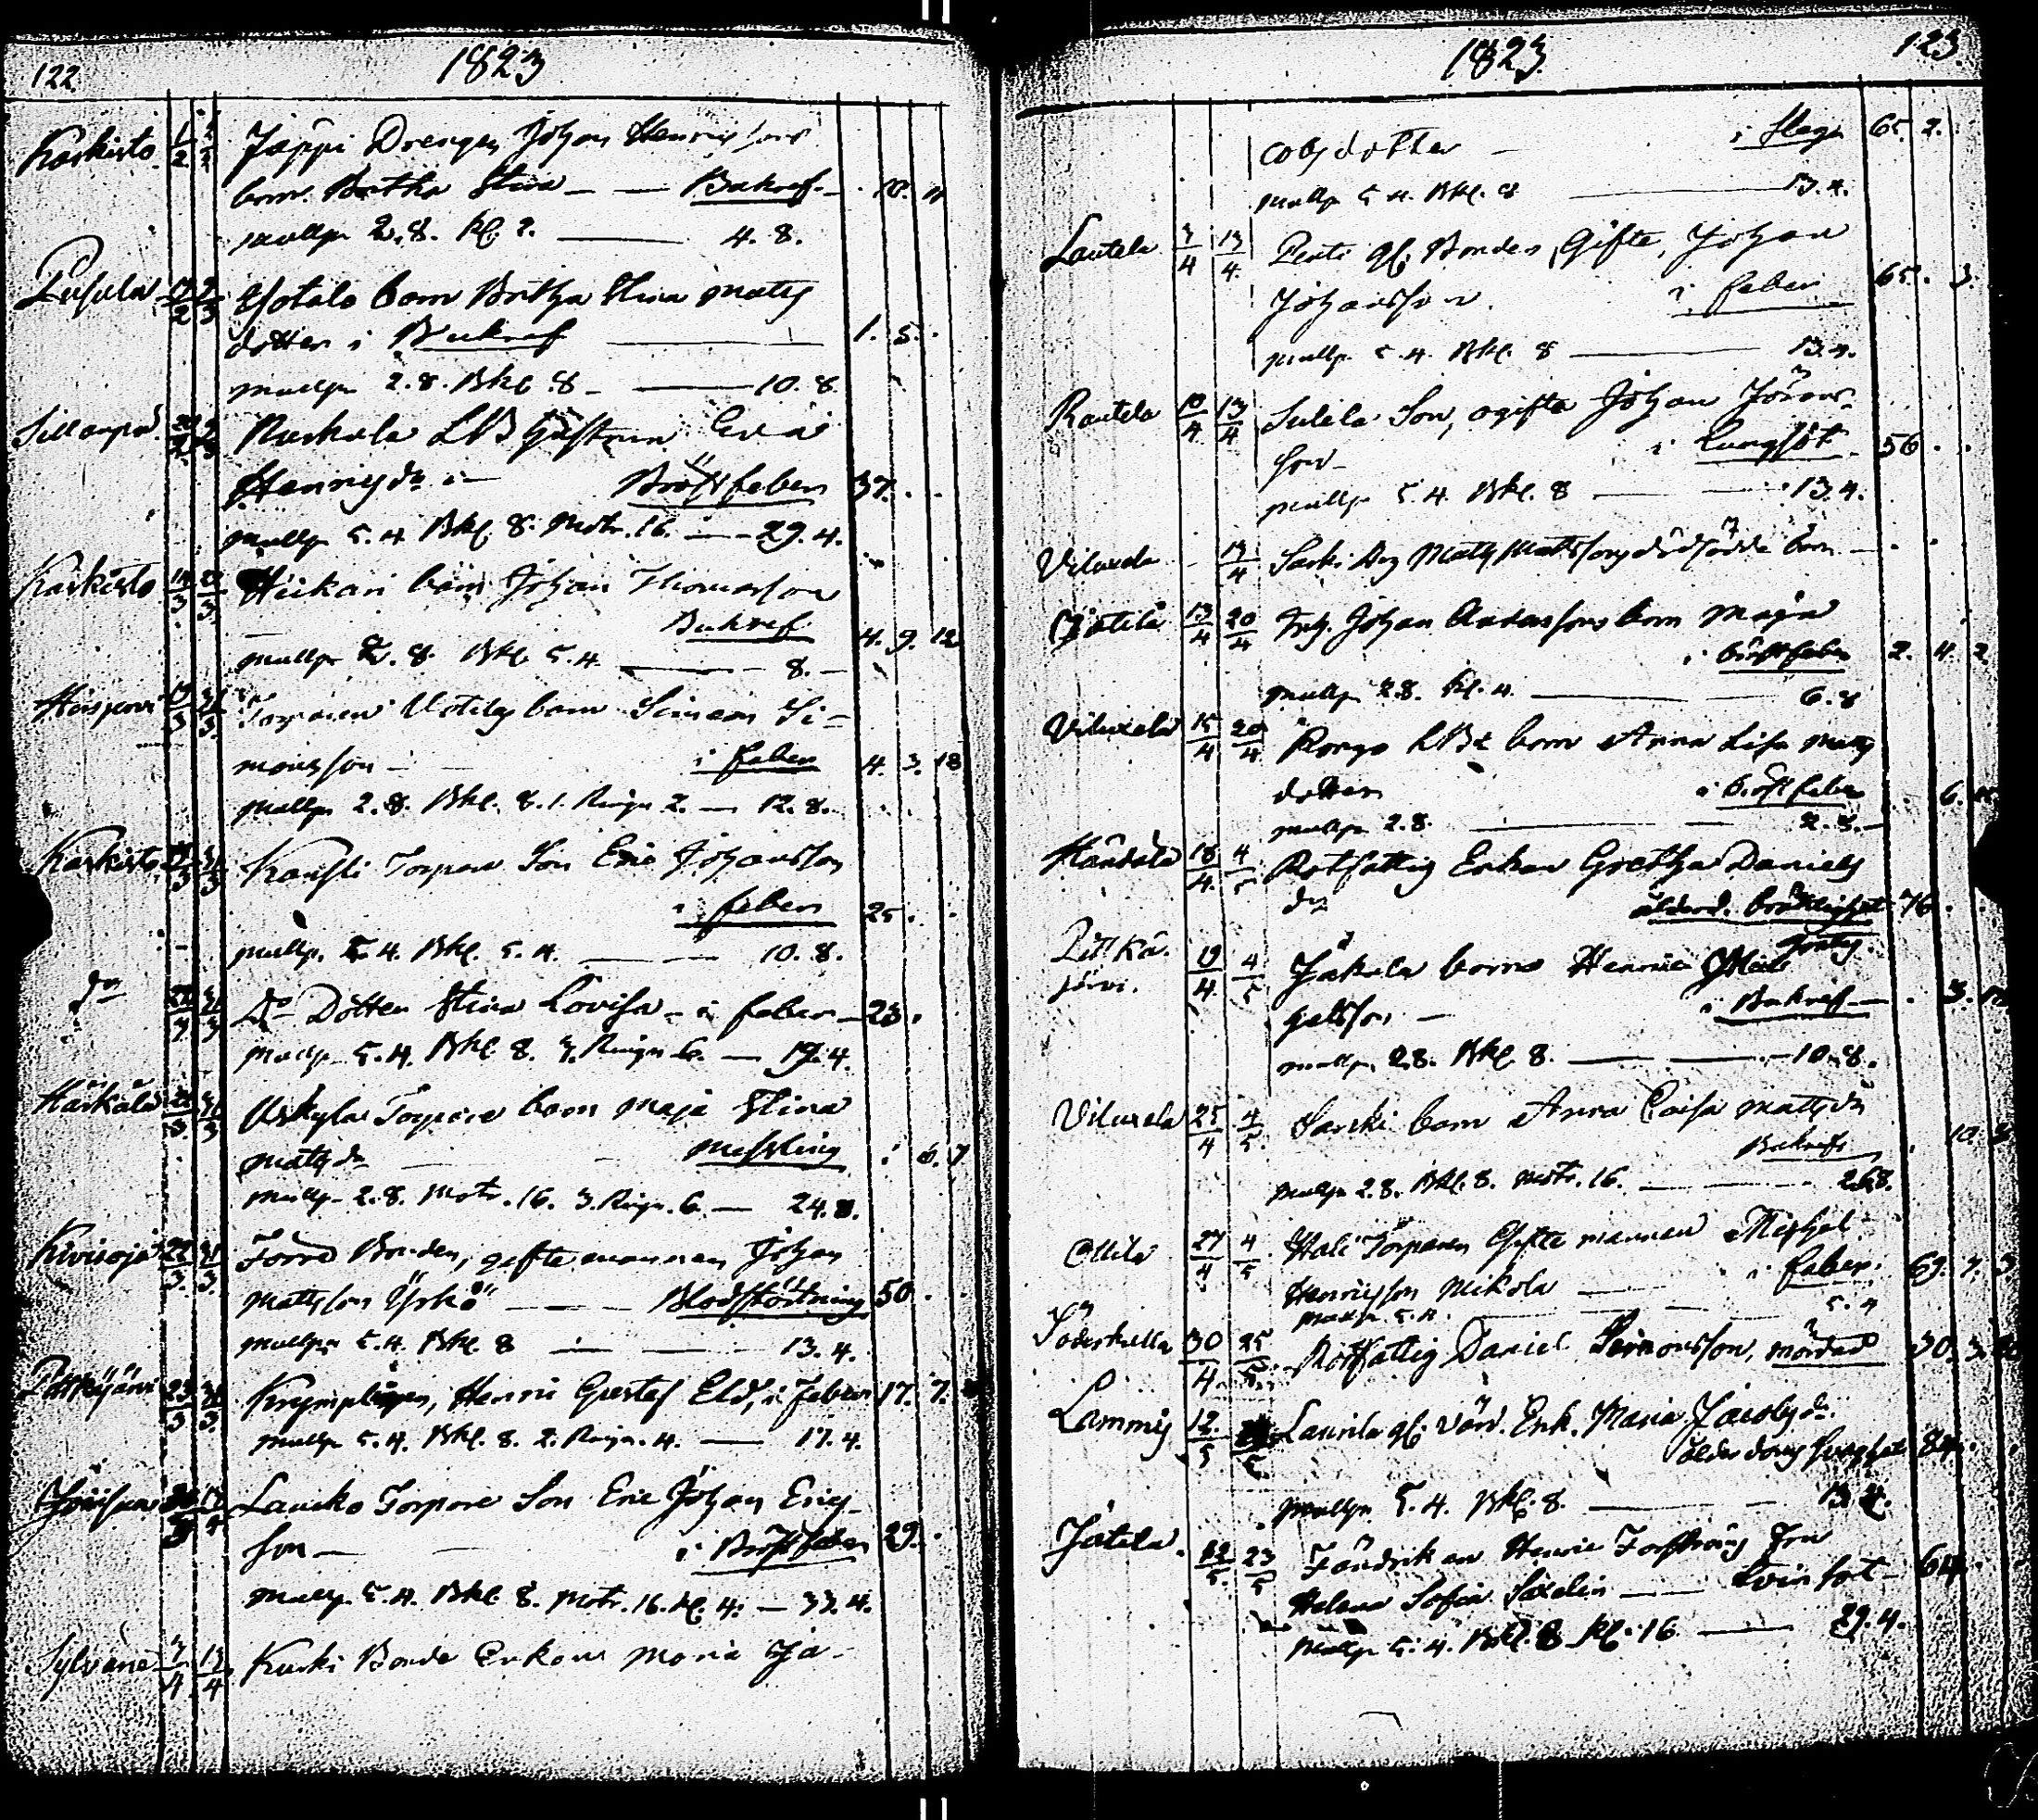 122.
1823
Karkisto 1/2 2/2 Jappi Drengen Johan Henrics sons
barn Britha Stina — — Bukref — . 10. 11
mullp 2.8. Kl. 2. — 4. 8.
Pusula 2 3 barn Britha Stina Mats
dotter i Bukref — 1. 5.
mullpn 2.8. Bkl. 8 — 10. 8.
Sillanpä Eva
Henricsdr i Bröstfeber 37.
mullp 5.4 Bkl. 8. Motr. 16. — 29. 4.
Karkisto 3 3 barn Johan Thomasson
Bukref 4. 9. 12
mullpn 2. 8. Bkl. 5. 4. — 8. —
3 3 Torparen barn Simeon Si-
monsson — i feber 4. 3. 18
mullpn 2. 8. Bkl. 8. 1. Ringn 2. — 12. 8.
Karkisto 3 3 Torpare Son Eric Johansson
i feber 25.
mullp. 5. 4. Bkl. 5. 4. — 10. 8.
do 3 3 Do Dotter Stina Lovisa — i feber — 23.
mullp 5. 4. Bkl. 8. 3. Ringn 6. — 19. 4.
Härkälä 3 3 Uskyla Torpare barn Maja Stina
Matsdr — Messling . 6. 7
mullp 2. 8. Motr. 16. 3. Ringn. 6. — 24. 8.
Kivioja 3 3 Förre Bonden, gifte mannen Johan
Mattsson Yrkö — Blodstörtning 50.
mullpn 5. 4. Bkl. 8 — 13. 4.
Pitkäjärvi 3 3 Krymplingen, Henric Gustaf Eld, i feber 17. 7.
mullp 5. 4. Bkl. 8. 2. Ringn. 4. — 17. 4.
3 4 Torpare Son Eric Johan Erics
son — i Bröstfeber 29.
mullp. 5. 4. Bkl. 8. Motr. 16. Kl. 4. — 33. 4.
4 13/4 Kurki Bonde Enkan Maria Ja-
1823.
123.
cobsdotter — i Slag 65. 2.
mullp 5 4. Bkl. 8 — 13. 4.
Lautela 3/4 13/4 Penti gl. Bonden, Gifte, Johan
Johansson. i feber 65. 3.
mullp. 5. 4. Bkl. 8 — 13. 4.
Rautela 10/4 13/4 Sulela Son, ogifte Johan Jörans-
son — i Lungsot 56
mullp 5. 4. Bkl. 8 — 13. 4.
Viluxela 13/4 Sarki Drg Mats Mattssons dödfödde barn —
Jätilä 13/4 20/4 Inh. Johan Anderssons barn Maja
i bröstfeber 2. 4. 2.
mullp 2.8. Kl. 4. — 6. 8
Viluxela 15/4 20/4 Rongo barn Anna Lisa Mats
dotter i bröstfeber 6.
mullpn 2.8. — 2. 8.
18/4 4/5 Rotfattig Enkan Gretha Daniels
dr ålderd. bräcklighet 76.
Pitkä-
järvi. 19/4 4/5 Jakola barns Henric
gelsson — i Bukref — . 3.
mullpn 2.8. Bkl. 8. — 10. 8.
Viluxela 25/4 4/5 Sarki barn Anna Caisa Matsdr
Bukref . 10.
mullpn 2. 8. Bkl. 8. Motr. 16. — 26.8.
Ollila 27/4 4/5 Hali Torparen Gifte mannen Michel
Henricsson Mikola — i feber. 69. 7. 3
mullp. 5. 4. — 5. 4
Söderkulla 30/4 25/5 Rotfattig Daniel Simonsson, mördad 30. 3.
Lammis 12/5 Laurila gl. Värd. Enk. Maria Jacobsdr.
ålderdoms svaghet 84.
mullpn 5. 4. Bkl. 8. — 13. 4.
Jätela. 12/5 23/5 Fändrikan Henric Fru
Helena Sofia — 64.
mullp 5. 4. Bkl. 8 Kl. 16 — 29. 4.